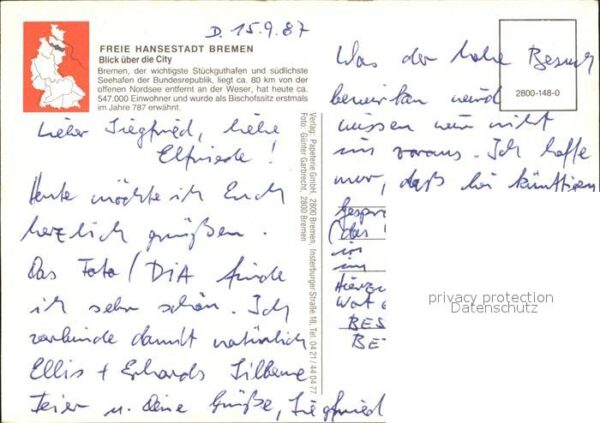 D. 15.9.87
FREIE HANSESTADT BREMEN
Blick über die City
Bremen, der wichtigste Stückguthafen und südlichste
Seehafen der Bundesrepublik, liegt ca. 80 km von der
offenen Nordsee entfernt an der Weser, hat heute ca.
547.000 Einwohner und wurde als Bischofssitz erstmals
im Jahre 787 erwähnt.
Lieber Siegfried, liebe
Elfriede!
Heute möchte ich Euch
herzlich grüßen.
Das Foto/DIA finde
ich sehr schön. Ich
verbinde damit natürlich
Ellis + Erhards Silberne
Feier u. Deine Grüße, Siegfried
Verlag: Papeterie GmbH, 2800 Bremen, Insterburger Straße 18, Tel. 04 21 / 44 04 77
Foto: Günter Garbrecht, 2800 Bremen
2800-148-0
Was der hohe Besuch
bewirken wird
wissen wir nicht
im voraus. Ich hoffe
nur, daß bei künftigen
Gespr
(das
im
Hierzu
Wort
BES
BE
privacy protection
Datenschutz